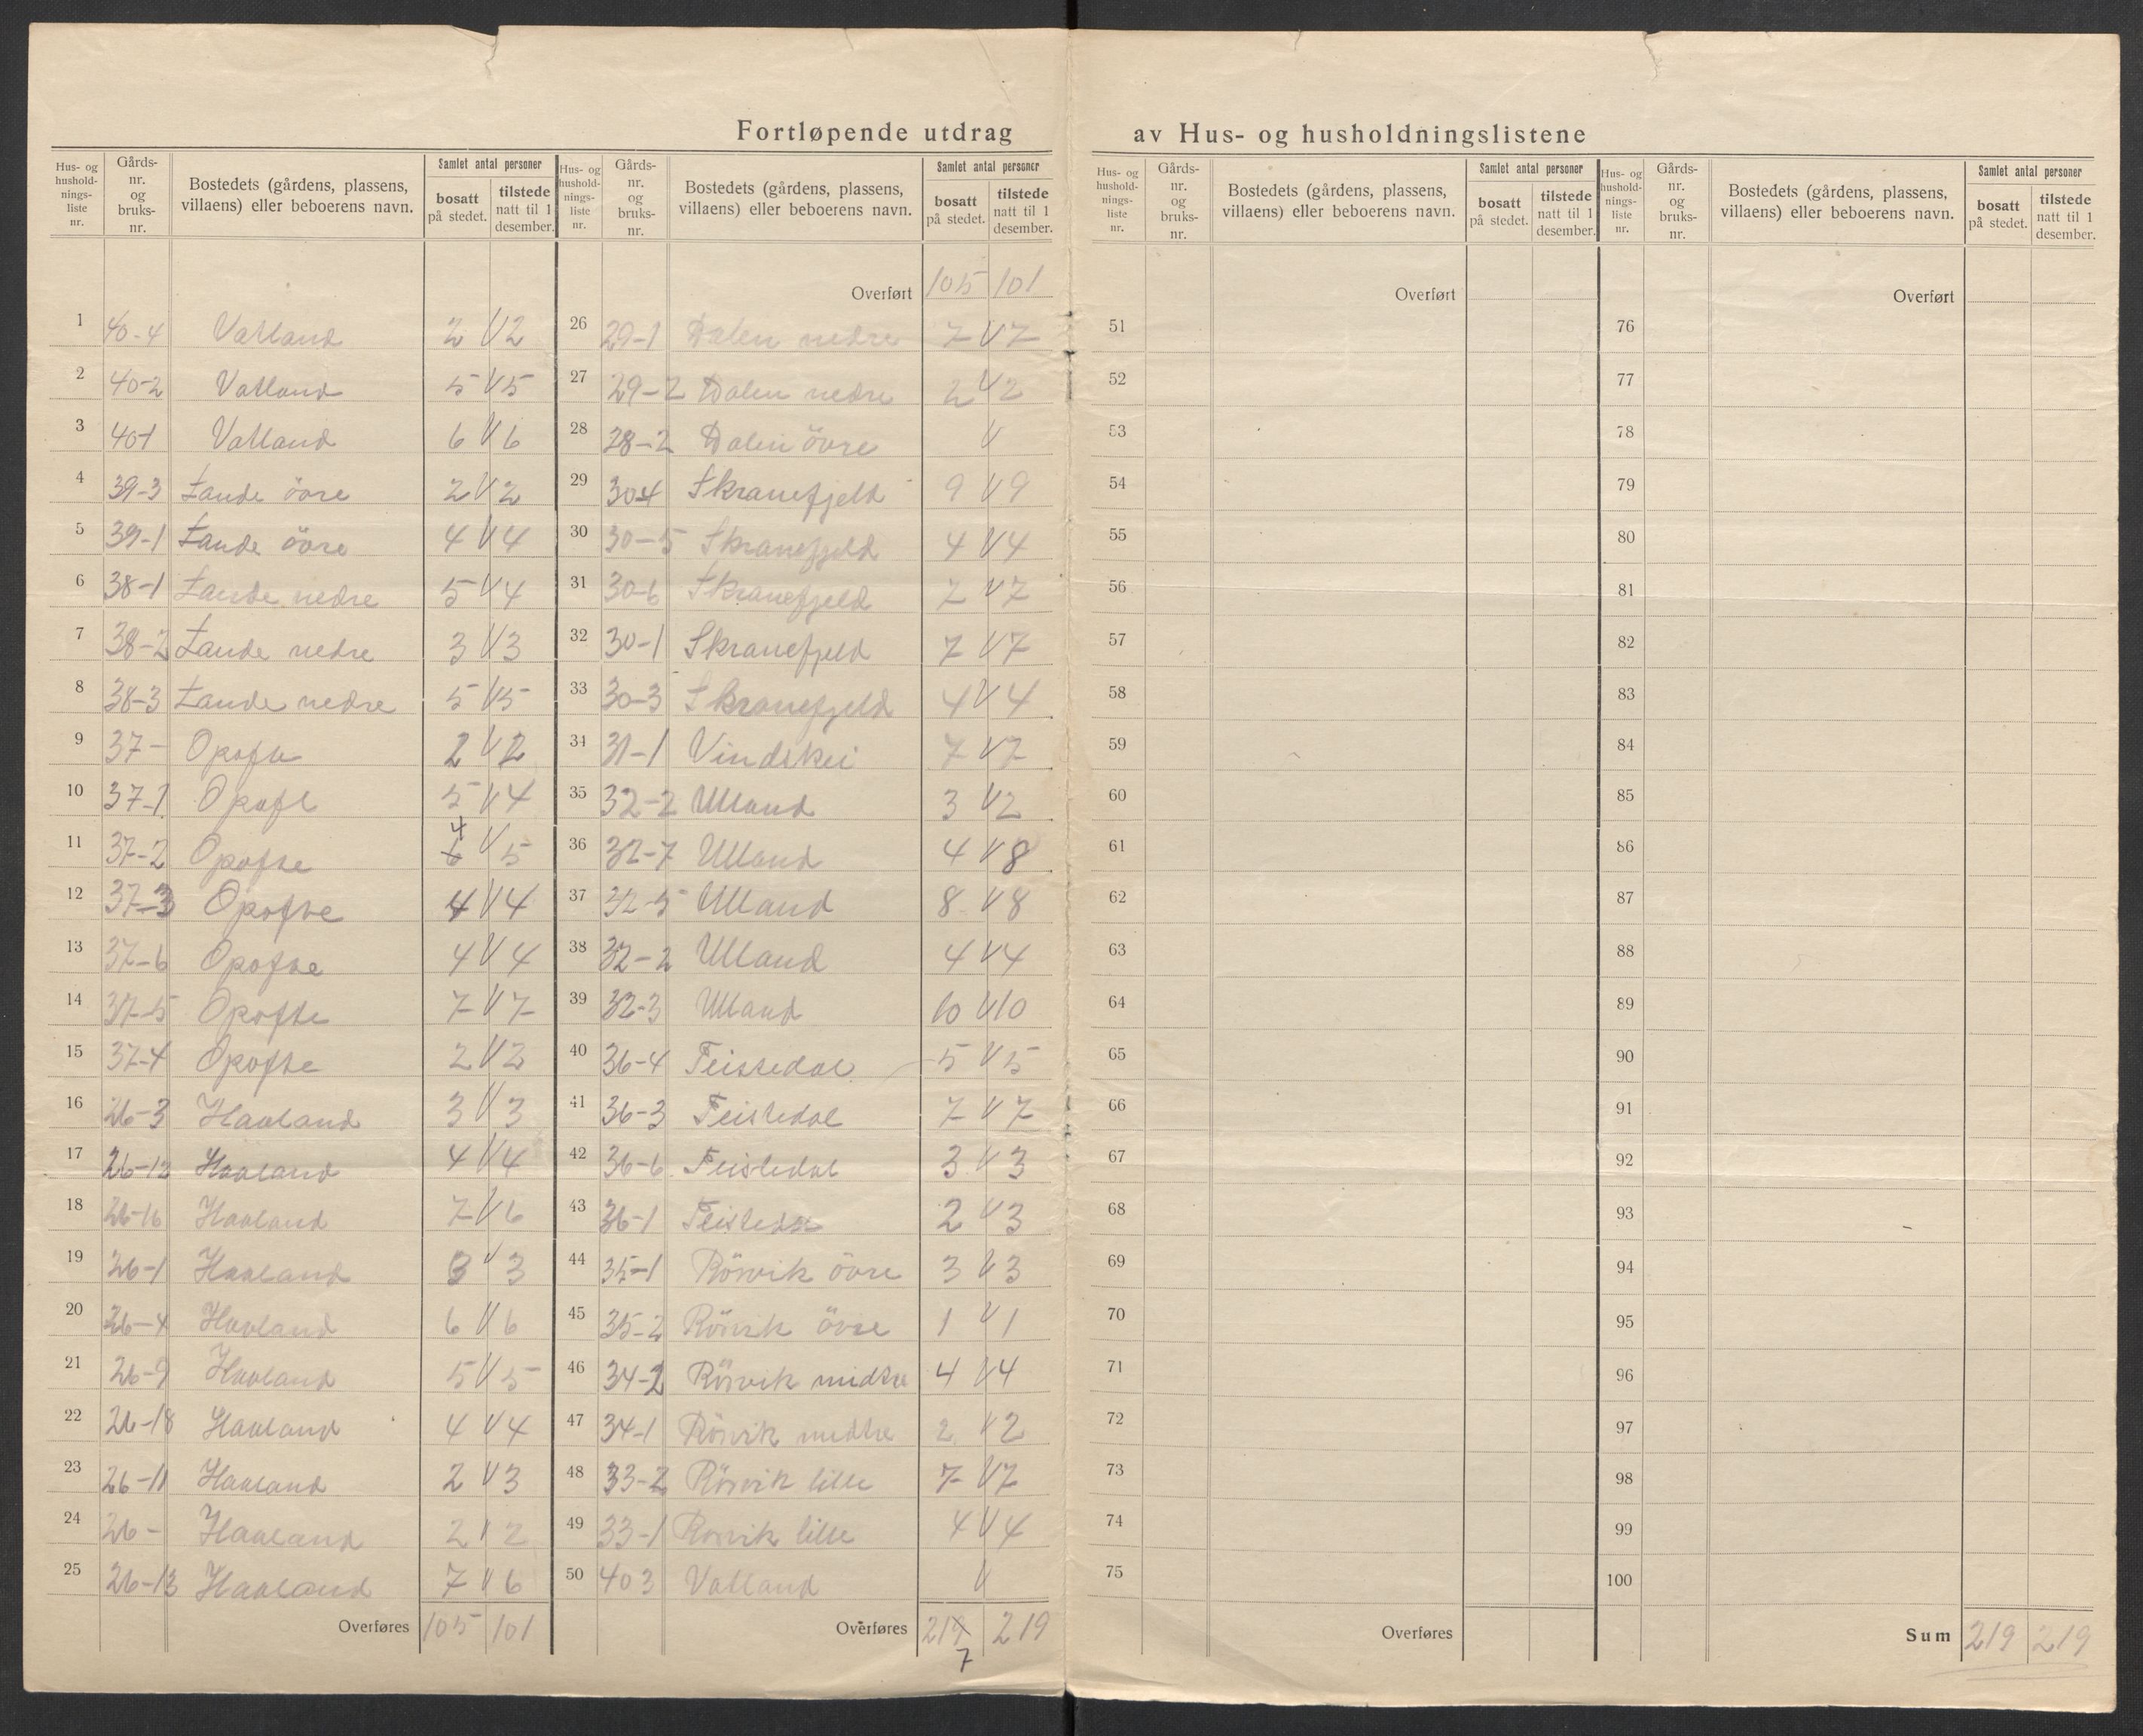 Fortløpende utdrag av Hus- og husholdningslistene
Hus- og husholdnings- liste nr. | Gårds- nr. og bruks- nr. | Bostedets (gårdens, plassens, villaens) eller beboerens navn. | Samlet antal personer | bosatt på stedet. | tilstede natt til 1 desember.
1 40-4 Vatland 2 V 2
2 40-2 Vatland 5 V 5
3 40-1 Vatland 6 V 6
4 39-3 Lande övre 2 V 2
5 39-1 Lande övre 4 V 4
6 38-1 Lande nedre 5 V 4
7 38-2 Lande nedre 3 V 3
8 38-3 Lande nedre 5 V 5
9 37- Opofte 2 V 2
10 37-1 Opofte 5 V 4
11 37-2 Opofte 6 4 V 5
12 37-3 Opofte 4 V 4
13 37-6 Opofte 4 V 4
14 37-5 Opofte 7 V 7
15 37-4 Opofte 2 V 2
16 26-3 Haaland 3 V 3
17 26-12 Haaland 4 V 4
18 26-16 Haaland 7 V 6
19 26-1 Haaland 3 V 3
20 26-4 Haaland 6 V 6
21 26-9 Haaland 5 V 5
22 26-18 Haaland 4 V 4
23 26-11 Haaland 2 V 3
24 26- Haaland 2 V 2
25 26-13 Haaland 7 V 6
Overføres 105 101
Hus- og husholdnings- liste nr. | Gårds- nr. og bruks- nr. | Bostedets (gårdens, plassens, villaens) eller beboerens navn. | Samlet antal personer | bosatt på stedet. | tilstede natt til 1 desember.
Overført 105 101
26 29-1 Dalen nedre 7 V 7
27 29-2 Dalen nedre 2 V 2
28 28-2 Dalen övre V
29 30-4 Skranefjeld 9 V 9
30 30-5 Skranefjeld 4 V 4
31 30-6 Skranefjeld 7 V 7
32 30-1 Skranefjeld 7 V 7
33 30-3 Skranefjeld 4 V 4
34 31-1 Vindskei 7 V 7
35 32-2 Ulland 3 V 2
36 32-7 Ulland 4 V 8
37 32-5 Ulland 8 V 8
38 32-2 Ulland 4 V 4
39 32-3 Ulland 10 V 10
40 36-4 Feistedal 5 V 5
41 36-3 Feistedal 7 V 7
42 36-6 Feistedal 3 V 3
43 36-1 Feistedal 2 V 3
44 35-1 Rörvik övre 3 V 3
45 35-2 Rörvik övre 1 V 1
46 34-2 Rörvik midtre 4 V 4
47 34-1 Rörvik midtre 2 V 2
48 33-2 Rörvik lille 7 V 7
49 33-1 Rörvik lille 4 V 4
50 40 3 Vatland V
Overføres 219 7 219
Hus- og husholdnings- liste nr. | Gårds- nr. og bruks- nr. | Bostedets (gårdens, plassens, villaens) eller beboerens navn. | Samlet antal personer | bosatt på stedet. | tilstede natt til 1 desember.
Overført
51
52
53
54
55
56
57
58
59
60
61
62
63
64
65
66
67
68
69
70
71
72
73
74
75
Overføres
Hus- og husholdnings- liste nr. | Gårds- nr. og bruks- nr. | Bostedets (gårdens, plassens, villaens) eller beboerens navn. | Samlet antal personer | bosatt på stedet. | tilstede natt til 1 desember.
Overført
76
77
78
79
80
81
82
83
84
85
86
87
88
89
90
91
92
93
94
95
96
97
98
99
100
Sum 219 219